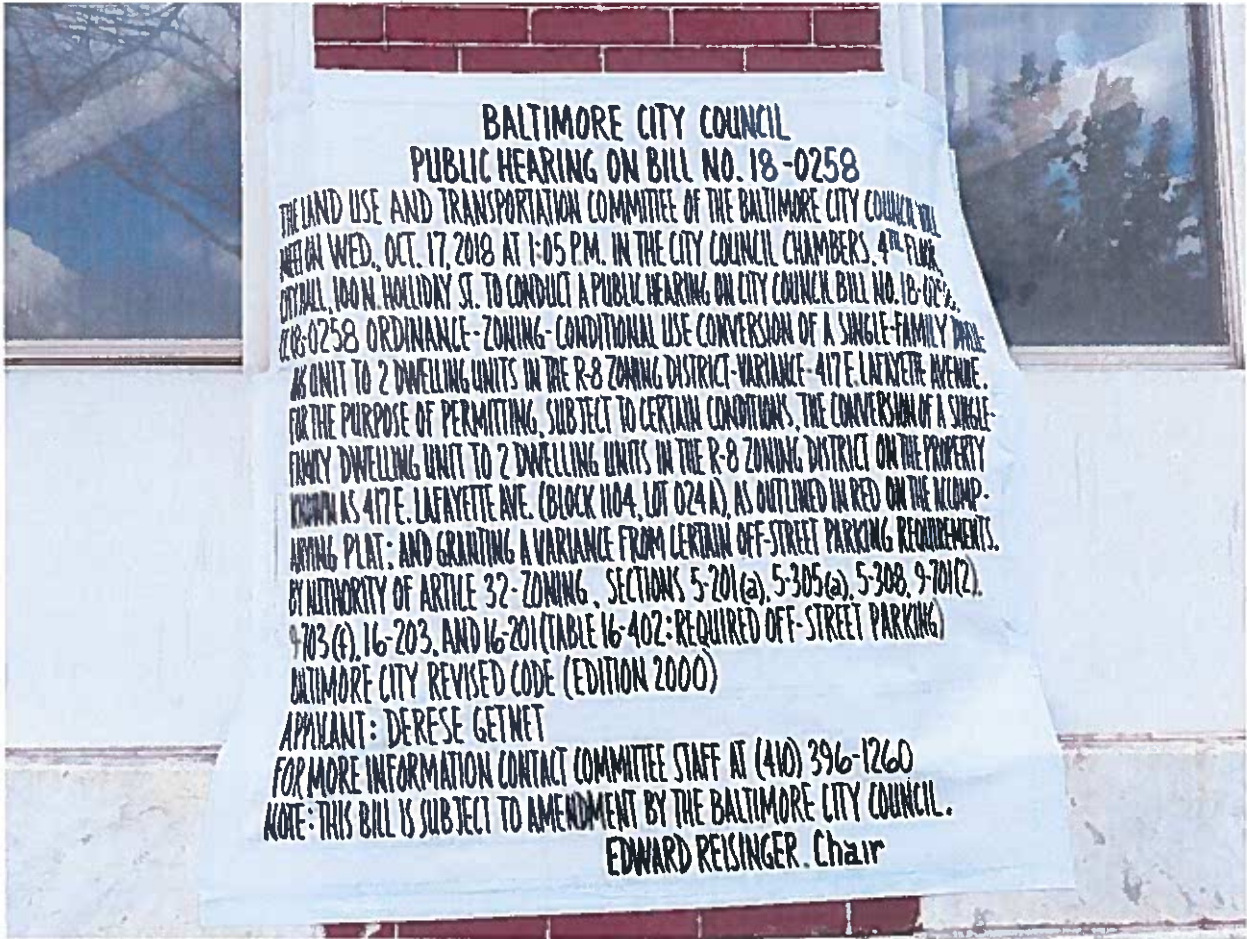 BALTIMORE CITY COUNCIL
PUBLIC HEARING ON BILL NO. 18-0258
THE LAND USE AND TRANSPORTATION COMMITTEE OF THE BALTIMORE CITY COUNCIL WILL
MEET ON WED., OCT. 17, 2018 AT 1:05 P.M. IN THE CITY COUNCIL CHAMBERS, 4TH FLOOR,
CITY HALL, 100 N. HOLLIDAY ST. TO CONDUCT A PUBLIC HEARING ON CITY COUNCIL BILL NO. 18-0258.
18-0258 ORDINANCE-ZONING-CONDITIONAL USE CONVERSION OF A SINGLE-FAMILY
UNIT TO 2 DWELLING UNITS IN THE R-8 ZONING DISTRICT-VARIANCE-417 E. LAFAYETTE AVENUE.
FOR THE PURPOSE OF PERMITTING, SUBJECT TO CERTAIN CONDITIONS, THE CONVERSION OF A SINGLE-
FAMILY DWELLING UNIT TO 2 DWELLING UNITS IN THE R-8 ZONING DISTRICT ON THE PROPERTY
KNOWN AS 417 E. LAFAYETTE AVE. (BLOCK 1104, LOT 024A), AS OUTLINED IN RED ON THE ACCOMP-
ANYING PLAT; AND GRANTING A VARIANCE FROM CERTAIN OFF-STREET PARKING REQUIREMENTS.
BY AUTHORITY OF ARTICLE 32-ZONING, SECTIONS 5-201(a), 5-305(a), 5-308, 9-701(2),
9-703(f), 16-203, AND 16-201 (TABLE 16-402: REQUIRED OFF-STREET PARKING)
BALTIMORE CITY REVISED CODE (EDITION 2000)
APPLICANT: DERESE GETNET
FOR MORE INFORMATION CONTACT COMMITTEE STAFF AT (410) 396-1260
NOTE: THIS BILL IS SUBJECT TO AMENDMENT BY THE BALTIMORE CITY COUNCIL.
EDWARD REISINGER. Chair